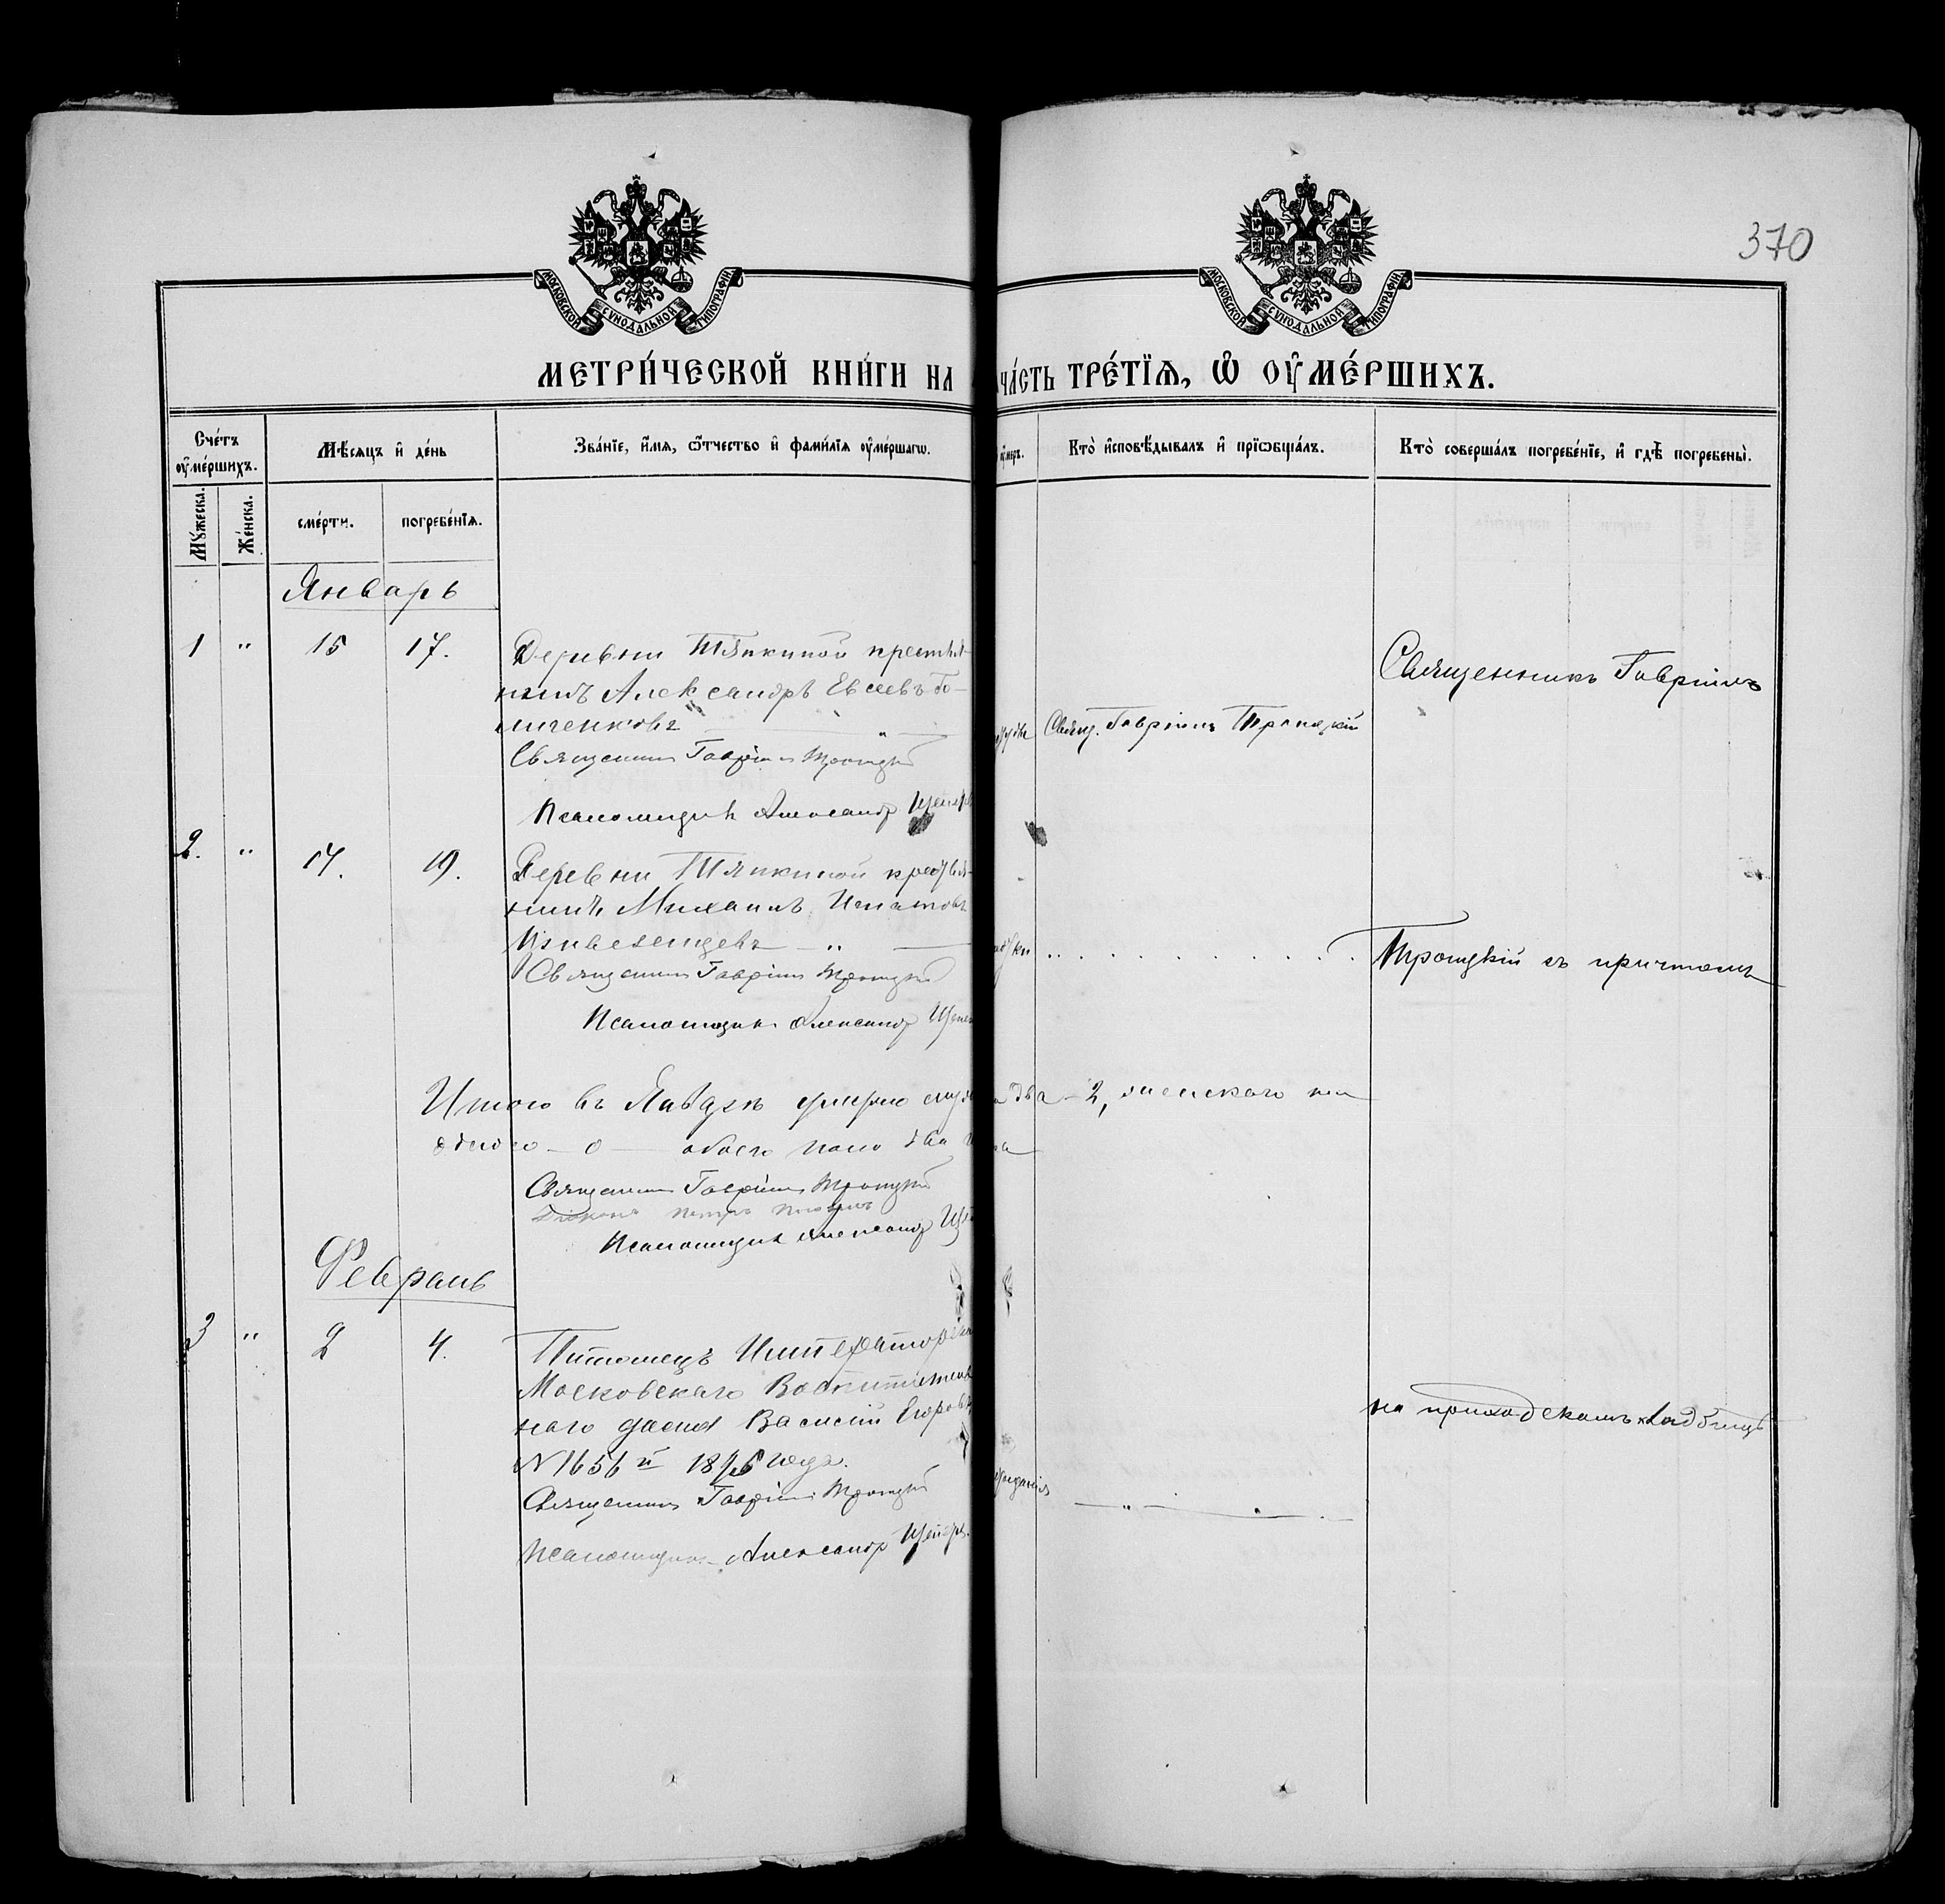 370
МОСКОВСКОЙ СѴНОДАЛЬНОЙ ТИПОГРАФІИ
МОСКОВСКОЙ СѴНОДАЛЬНОЙ ТИПОГРАФІИ
МЕТРИ́ЧЕСКОЙ КНИ́ГИ НА ЧА́СТЬ ТРЕ́ТЇѦ, Ѡ҆ ОУ҆МЕ́РШИХЪ.
Сче́тъ оу҆ме́ршихъ.
Мꙋ́жеска.
Же́нска.
Мѣ́сяцъ и҆ де́нь
сме́рти.
погребе́нїѧ.
Зва́нїе, и҆́мѧ, ѻ҆́тчество и҆ фами́лїѧ оу҆ме́ршагѡ.
Кто̀ и҆сповѣ́дывалъ и҆ прїѡбща́лъ.
Кто̀ соверша́лъ погребе́нїе, и҆ гдѣ̀ погребены̀.
Январь
1 " 15 17.
Деревни Тяпкиной крестья-
нинъ Александръ Евсеевъ
Свящ. Гавріилъ Троицкій
Священникъ Гавріилъ Троицкій
Псаломщикъ Александр
Священникъ Гавріилъ
2. " 17. 19.
Деревни Тяпкиной кресть-
нинъ Михаилъ Игнатовъ
Священникъ Гавріилъ Троицкій
Псаломщикъ Александр
Троицкій съ причтомъ
Итого въ Январѣ умерло два - 2, женскаго ни
одного - 0 - обоего пола два
Священникъ Гавріилъ Троицкій
Діаконъ Петръ
Псаломщикъ Александр
Февраль
3 " 2 4.
Питомецъ Императорска
Московскаго Воспитатель
наго дома Василій Егоровъ
N 1656 й года.
Священникъ Гавріилъ Троицкій
Псаломщикъ Александр
на приходскомъ кладбищѣ